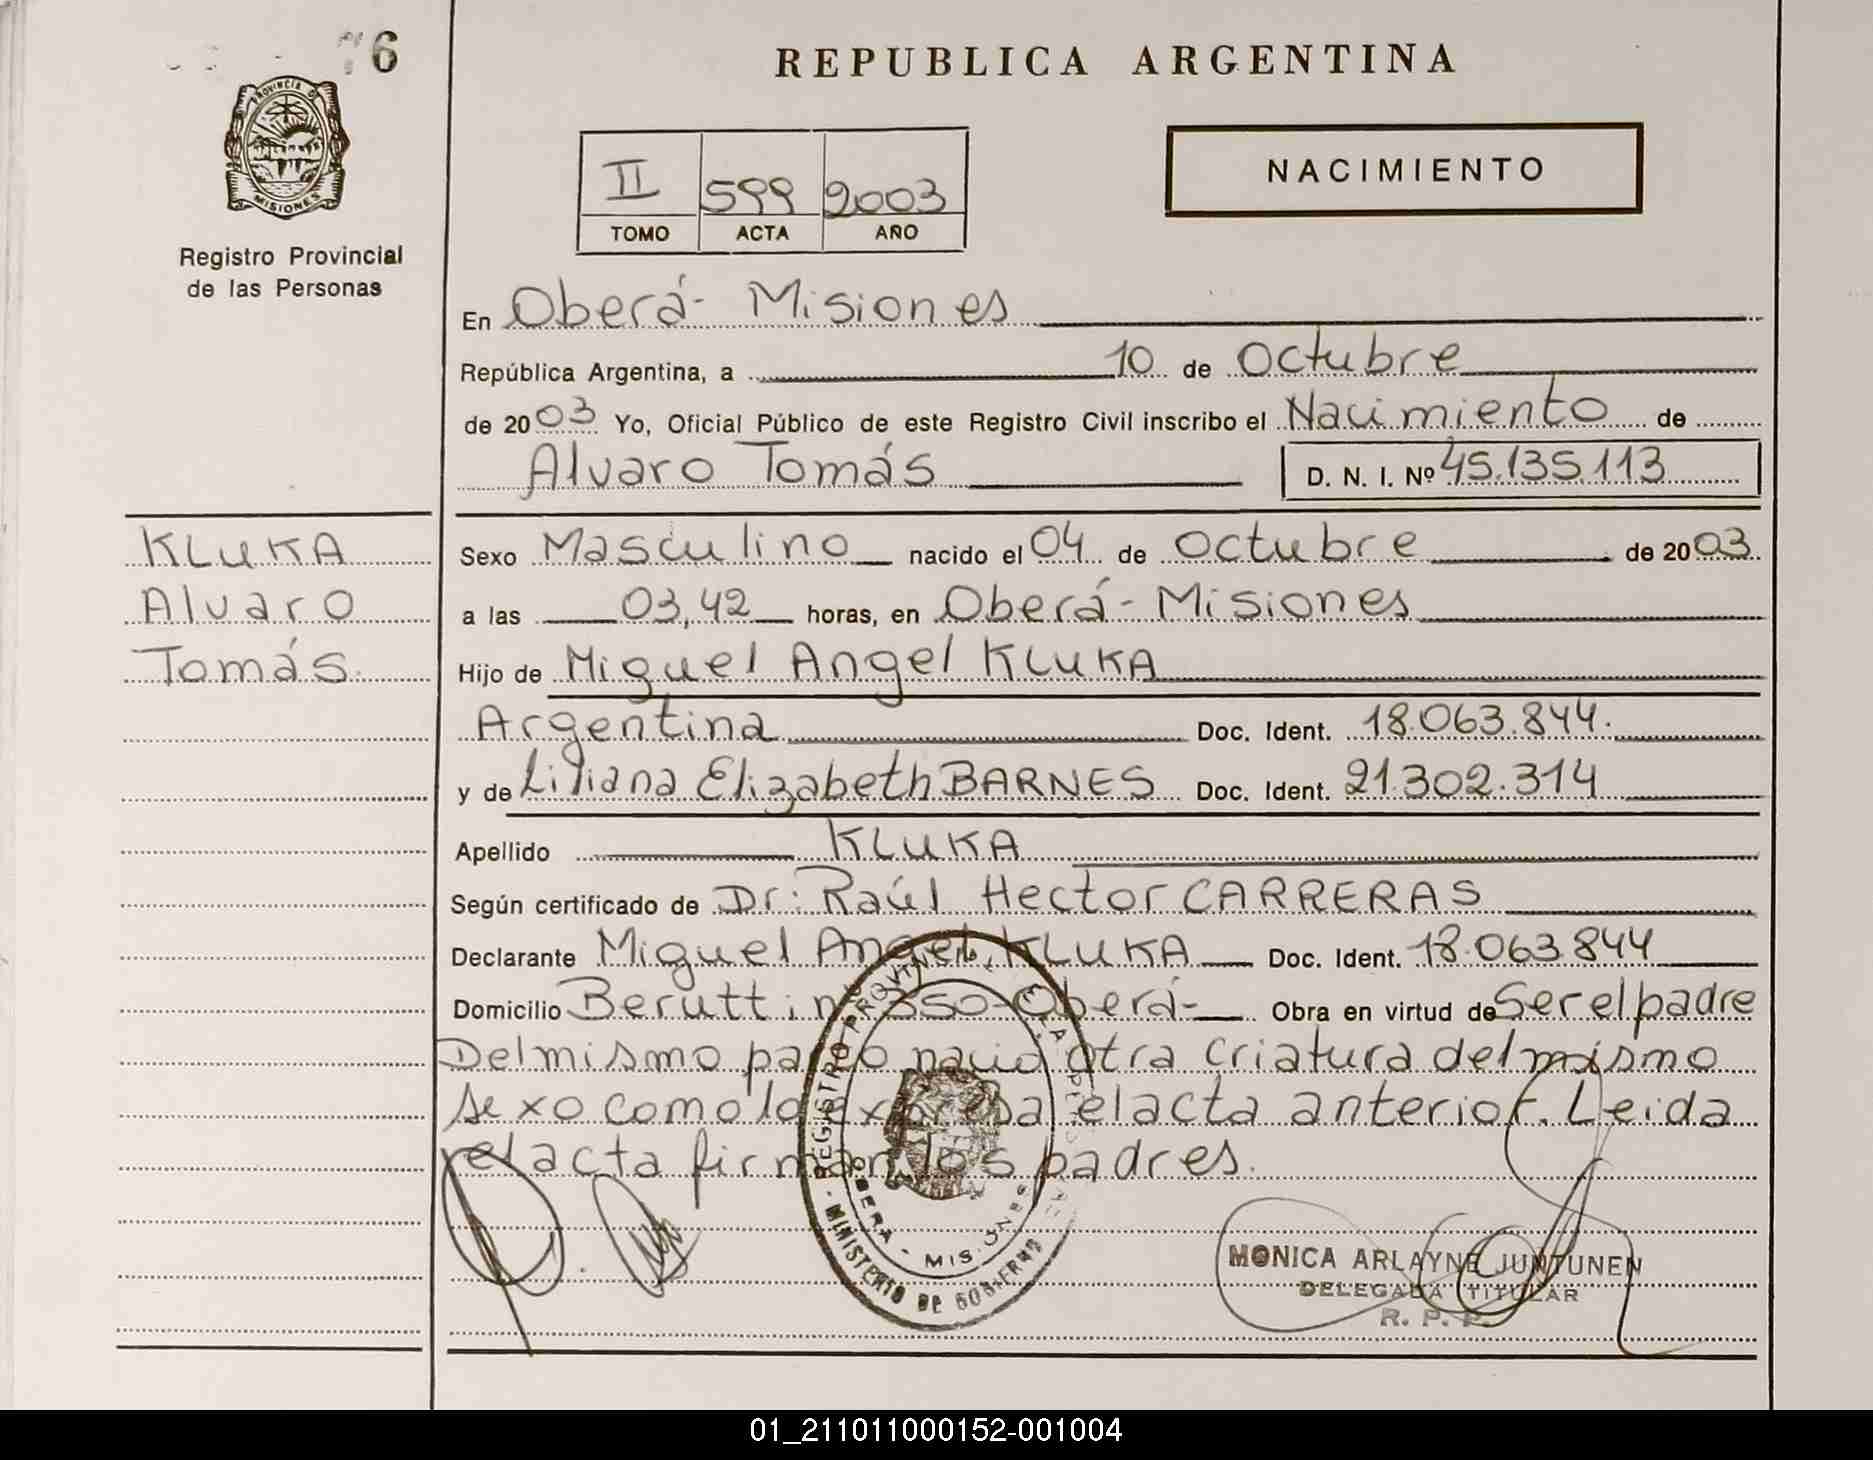 76
REPUBLICA ARGENTINA
PROVINCIA DE
MISIONES
Registro Provincial
de las Personas
NACIMIENTO
II 599 2003
TOMO ACTA AÑO
En Oberá- Misiones
República Argentina, a 10 de Octubre
de 2003 Yo, Oficial Público de este Registro Civil inscribo el Nacimiento de
Alvaro Tomás D. N. I. Nº 45.135.113
KLUKA
Alvaro
Tomás.
Sexo Masculino nacido el 04 de Octubre de 2003
a las 03,42 horas, en Oberá- Misiones
Hijo de Miguel Angel KLUKA
Argentina Doc. Ident. 18.063.844.
y de Liliana Elizabeth BARNES Doc. Ident. 21.302.314
Apellido KLUKA
Según certificado de Dr: Raúl Hector CARRERAS
Declarante Miguel Angel KLUKA Doc. Ident. 18.063.844
Domicilio Berutti Oberá- Obra en virtud de Ser el padre
Del mismo parto nació otra criatura del mismo
sexo como lo expresa el acta anterior. Leida
el acta firman los padres.
REGISTRO PROVINCIAL DE LAS PERSONAS
OBERA - MISIONES
- MINISTERIO DE GOBIERNO
MONICA ARLAYNE JUNTUNEN
DELEGADA TITULAR
R. P. P.
01_211011000152-001004